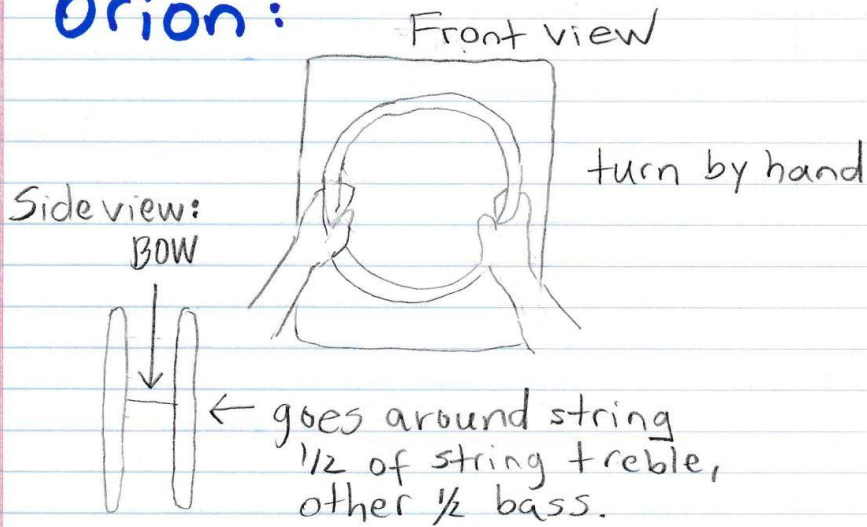 Orion:
Front view
turn by hand
Side view:
BOW
← goes around string
1/2 of string treble,
other 1/2 bass.